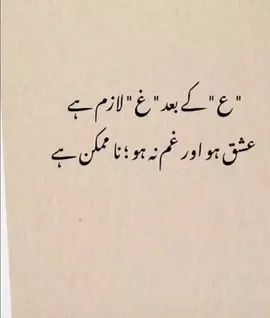 "ع" کے بعد "غ" لازم ہے
عشق ہو اور غم نہ ہو ؛ نا ممکن ہے